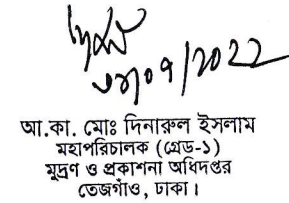 আ.কা. মোঃ দিনারুল ইসলাম
মহাপরিচালক (গ্রেড-১)
মুদ্রণ ও প্রকাশনা অধিদপ্তর
তেজগাঁও, ঢাকা।